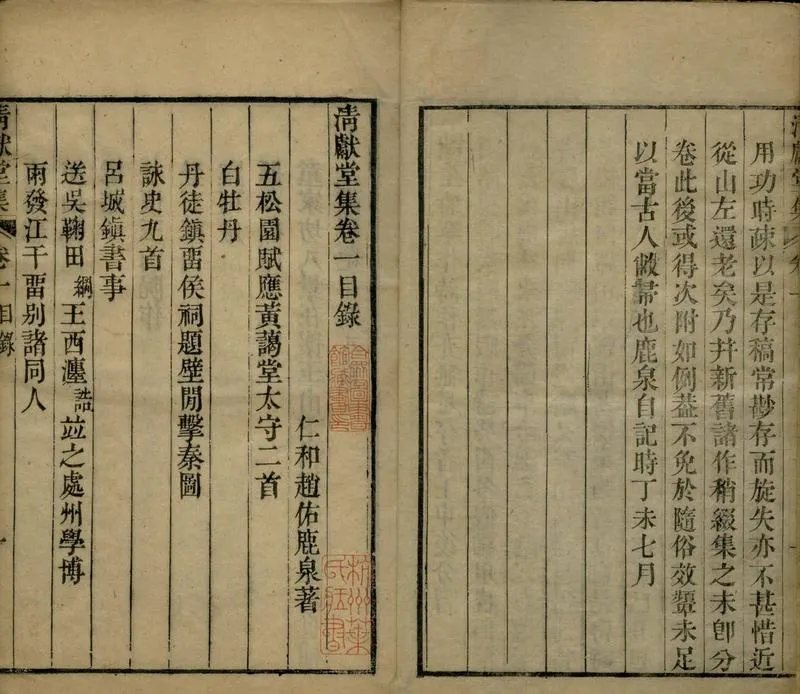 用功時疎以是存稿常尠存而旋失亦不甚惜近
從山左還老矣乃幷新舊諸作稍綴集之未卽分
卷此後或得次附如例葢不免於隨俗效顰未足
以當古人敝帚也鹿泉自記時丁未七月
清獻堂集卷一目錄
仁和趙佑鹿泉著
五松園賦應黃藹堂太守二首
白牡丹
丹徒鎮畱侯祠題壁閒擊秦圖
詠史九首
呂城鎮書事
送吳鞠田綱王西瀍誥竝之處州學博
雨發江干畱别諸同人
清獻堂集 卷一目錄 一